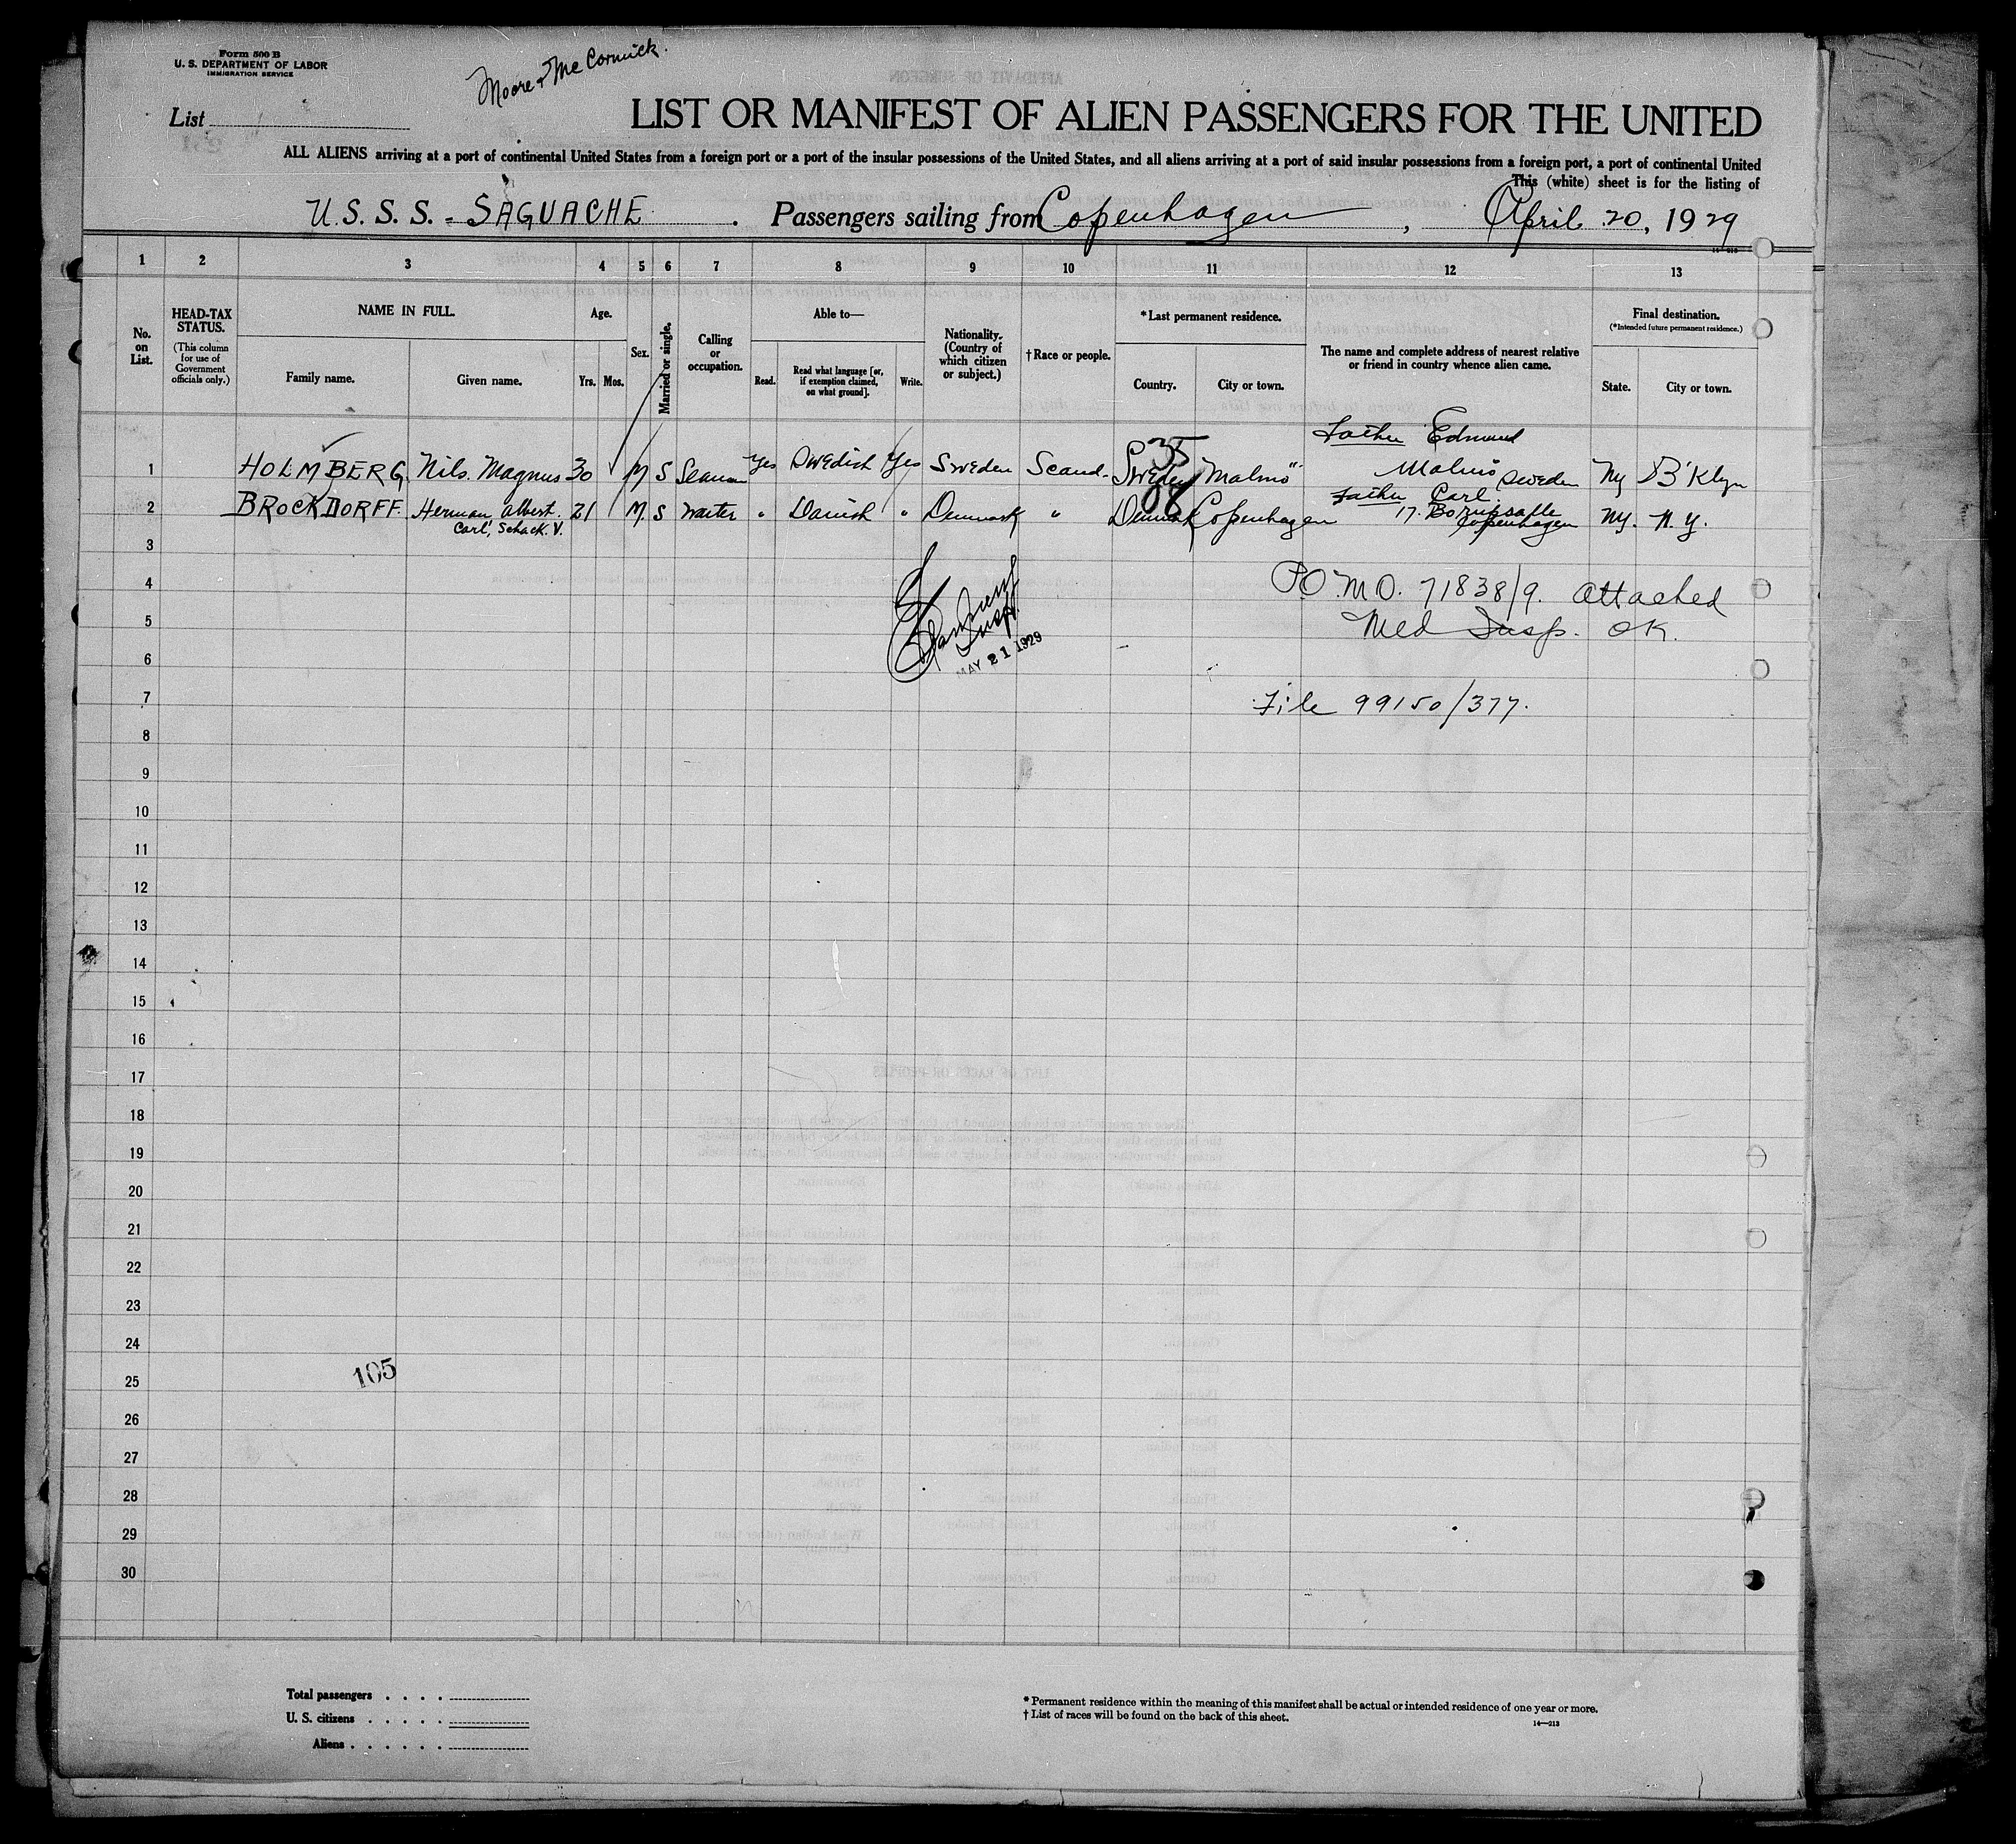 Form 500 B
U. S. DEPARTMENT OF LABOR
IMMIGRATION SERVICE
Moore & McCormick.
List
LIST OR MANIFEST OF ALIEN PASSENGERS FOR THE UNITED
ALL ALIENS arriving at a port of continental United States from a foreign port or a port of the insular possessions of the United States, and all aliens arriving at a port of said insular possessions from a foreign port, a port of continental United
This (white) sheet is for the listing of
U.S.S.S. - SAGUACHE. Passengers sailing from Copenhagen, April 20, 1929
1 2 3 4 5 6 7 8 9 10 11 12 13
No. on List.
HEAD-TAX STATUS. (This column for use of Government officials only.)
NAME IN FULL.
Family name. Given name.
Age.
Yrs. Mos.
Sex.
Married or single.
Calling or occupation.
Able to—
Read. Read what language [or, if exemption claimed, on what ground]. Write.
Nationality. (Country of which citizen or subject.)
† Race or people.
*Last permanent residence.
Country. City or town.
The name and complete address of nearest relative or friend in country whence alien came.
Final destination.
(*Intended future permanent residence.)
State. City or town.
1 HOLMBERG. Nils. Magnus 30 M S Seaman Yes Swedish Yes Sweden Scand. 35 Sweden Malmö Father Edmund Malmö Sweden Ny B'Klyn
2 BROCKDORFF. Herman Albert. Carl, Schack. V. 21 M. S Waiter " Danish " Denmark " 08 Denmark Copenhagen Father Carl. 17. Copenhagen Ny. N.Y.
3
4 P.O. M.O. 71838/9. attached
5 Med Insp. OK.
Insp.
MAY 21 1929
6
7 File 99150/377.
8
9
10
11
12
13
14
15
16
17
18
19
20
21
22
23
24
105
25
26
27
28
29
30
Total passengers . . . .
U. S. citizens . . . . .
Aliens . . . . . .
* Permanent residence within the meaning of this manifest shall be actual or intended residence of one year or more.
† List of races will be found on the back of this sheet.
14—213